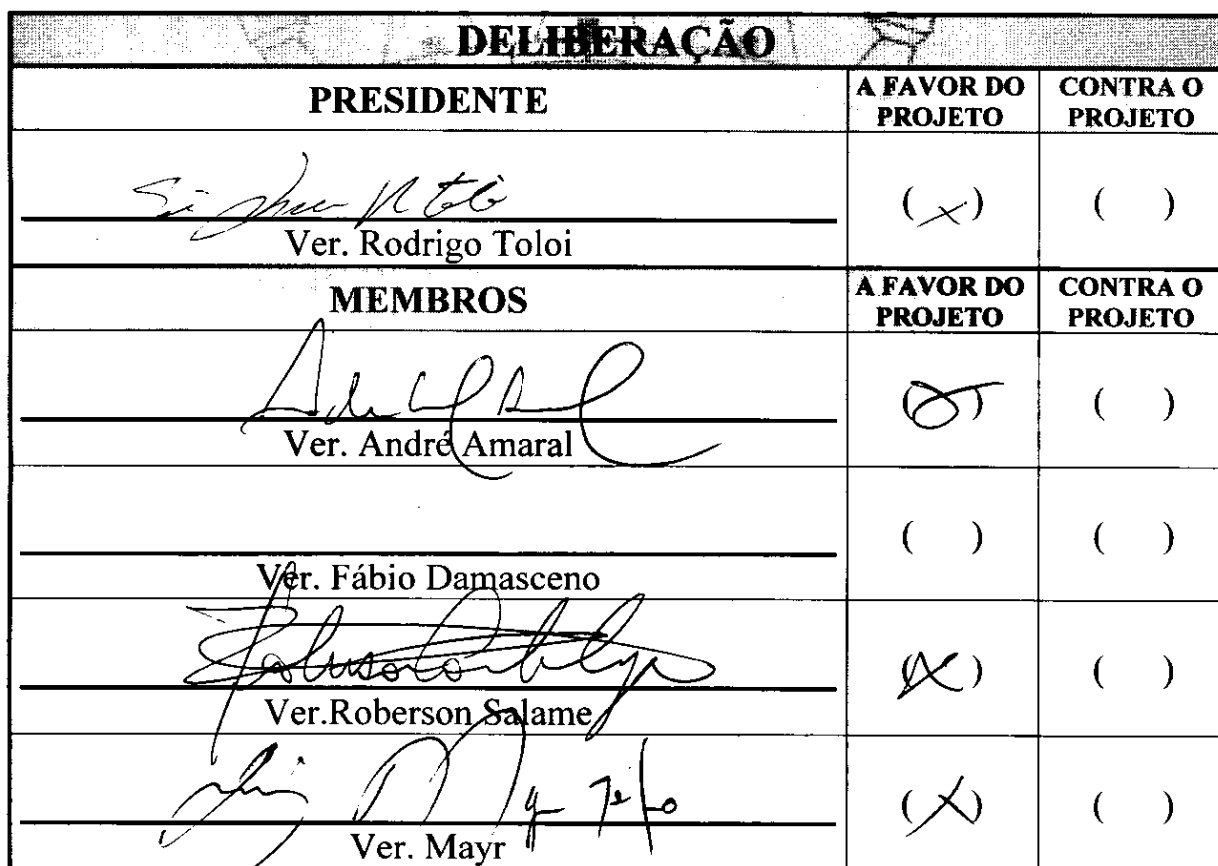 DELIBERAÇÃO
PRESIDENTE
A FAVOR DO PROJETO
CONTRA O PROJETO
(x) ( )
Ver. Rodrigo Toloi
MEMBROS
A FAVOR DO PROJETO
CONTRA O PROJETO
(x) ( )
Ver. André Amaral
( ) ( )
Ver. Fábio Damasceno
(x) ( )
Ver.Roberson Salame
(x) ( )
Ver. Mayr